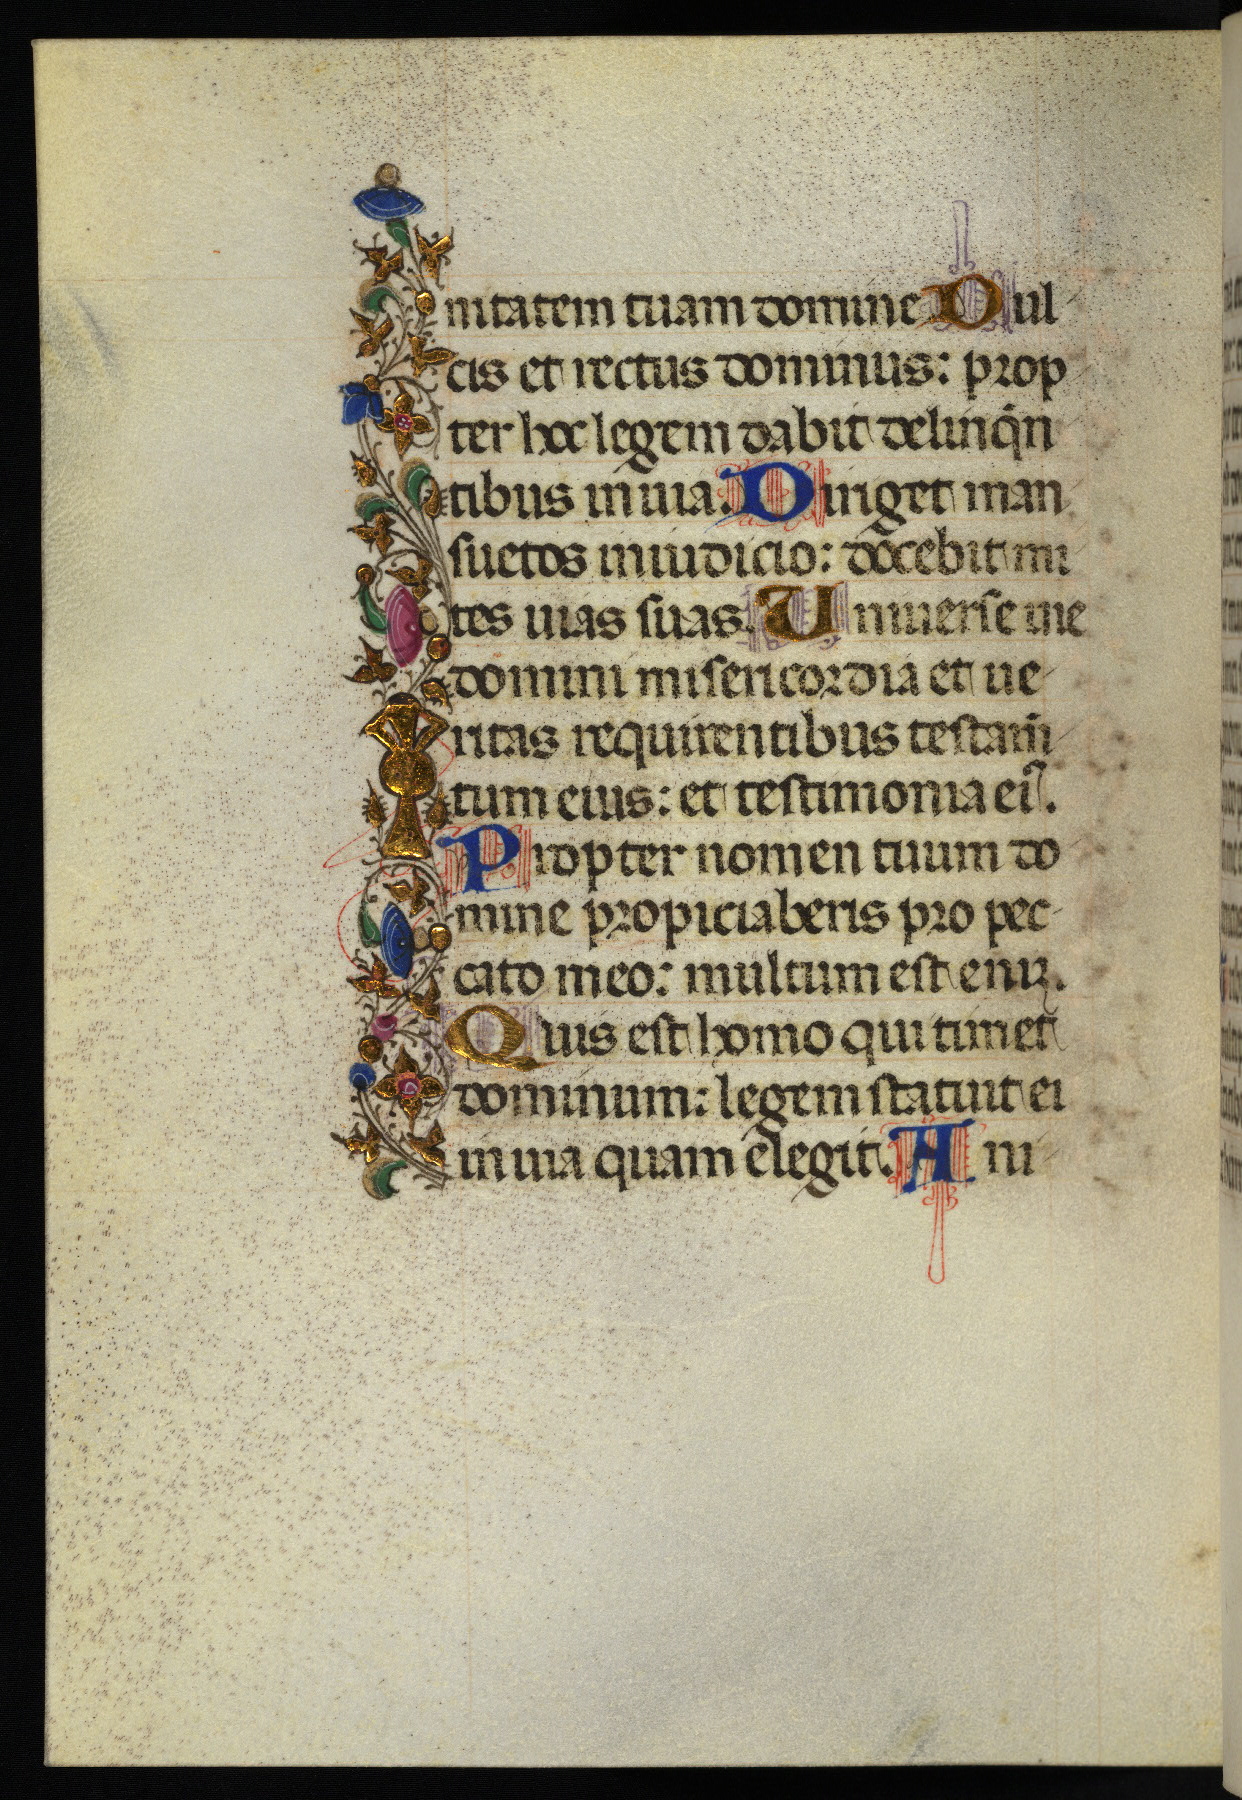 nitatem tuam domine Dul
cis et rectus dominus: prop
ter hoc legem dabit delinq̄n
tibus in uia. Diriget man
suetos in iudicio: docebit mi
tes uias suas. Uniuerse uie
domini misericordia et ue
ritas requirentibus testam̄
tum eius: et testimonia ei᾽.
Propter nomen tuum do
mine propiciaberis pro pec
cato meo: multum est enim.
Quis est homo qui timet
dominum: legem statuit ei
in uia quam elegit. Ani